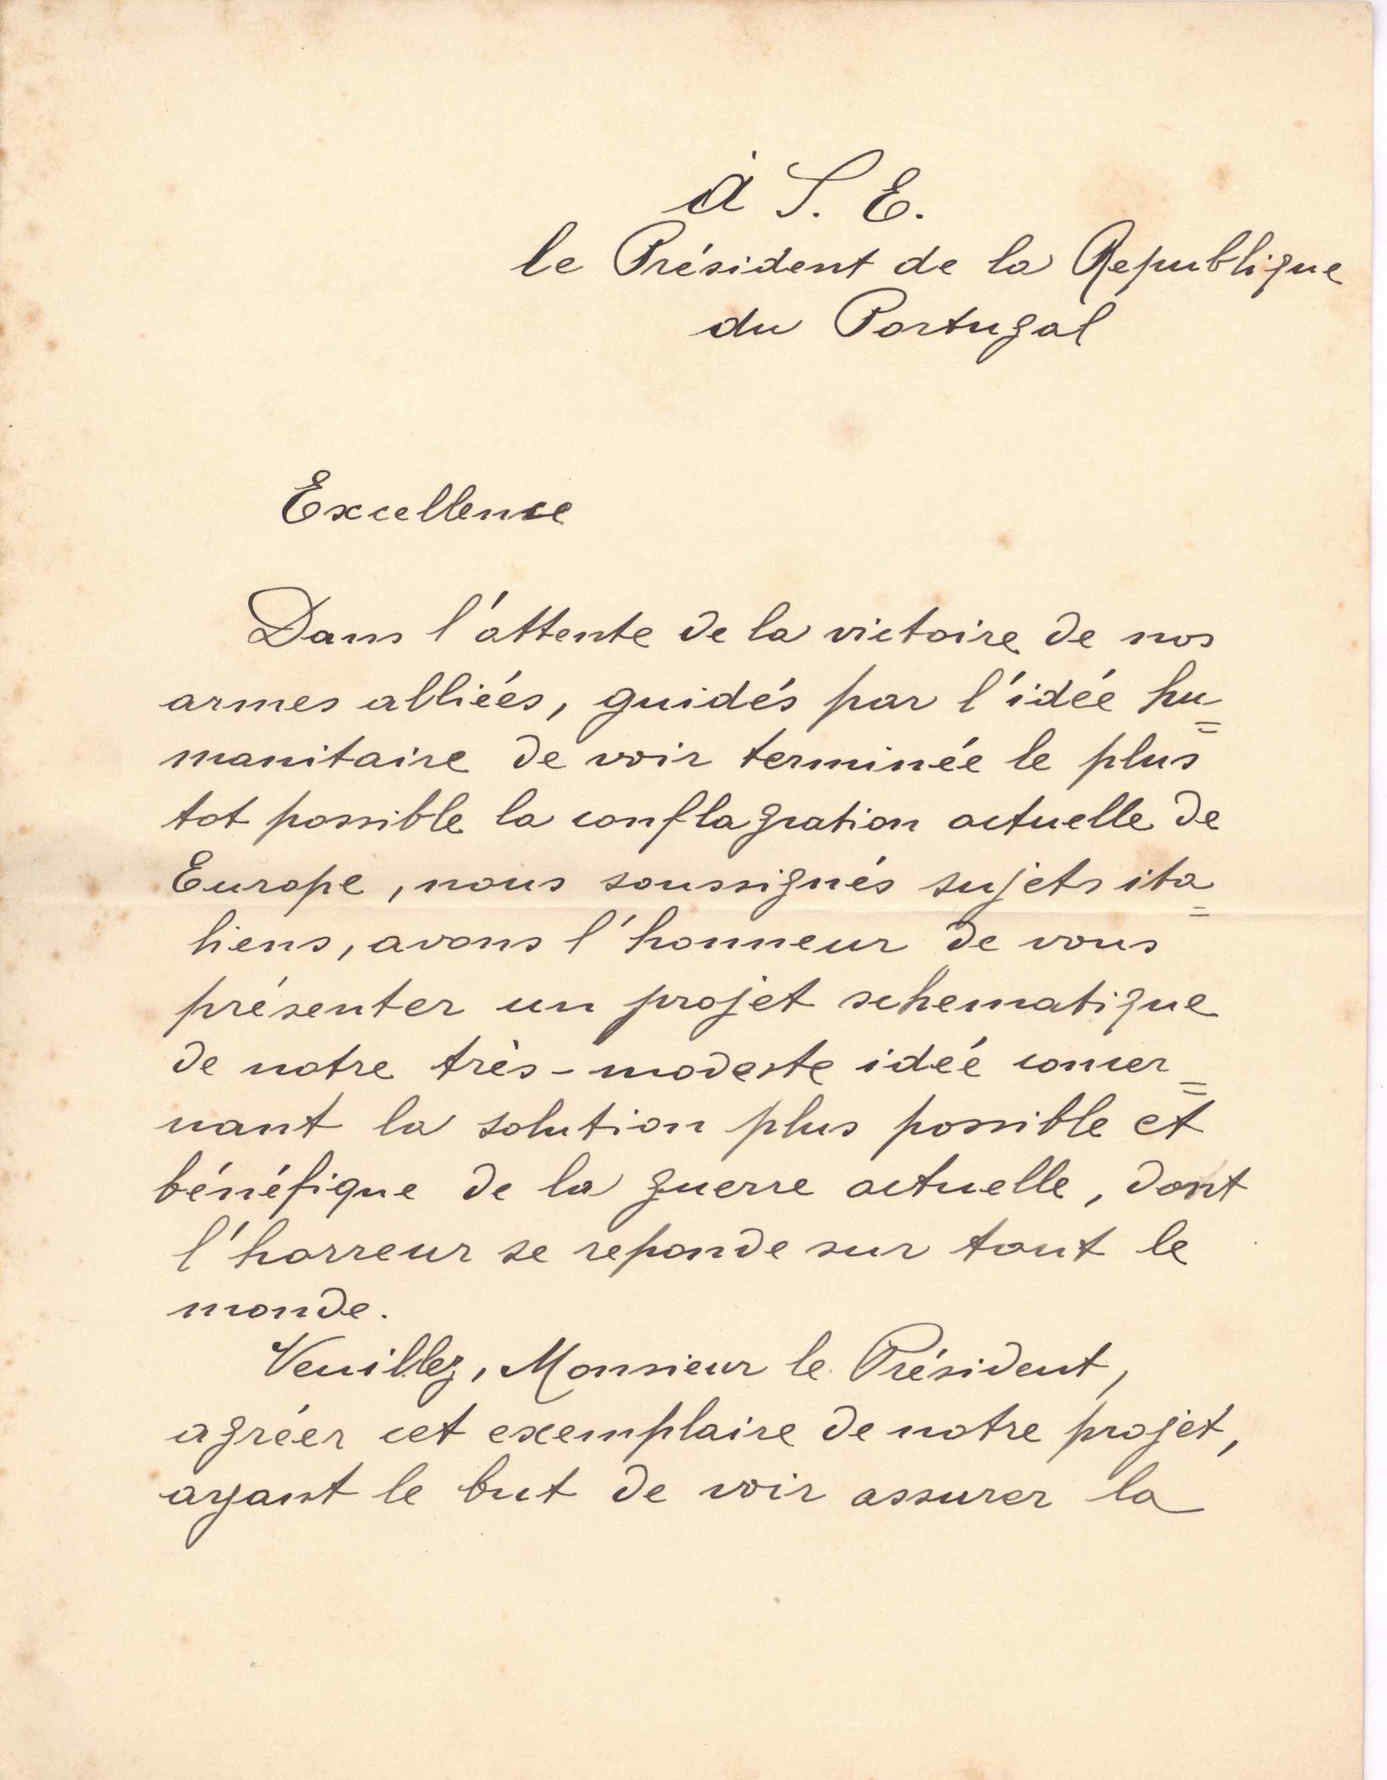 à S. E.
le Président de la Republique
du Portugal
Excellence
Dans l'attente de la victoire de nos
armes alliéés, guidés par l'idéé hu=
manitaire de voir terminée le plus
tot possible la conflagration actuelle de
Europe, nous soussignés sujets ita=
liens, avons l'honneur de vous
présenter un projet schematique
de notre très-modeste idéé concer=
nant la solution plus possible et
bénéfique de la guerre actuelle, dont
l'horreur se reponde sur tout le
monde.
Veuillez, Monsieur le Président,
agréer cet exemplaire de notre projet,
ayant le but de voir assurer la